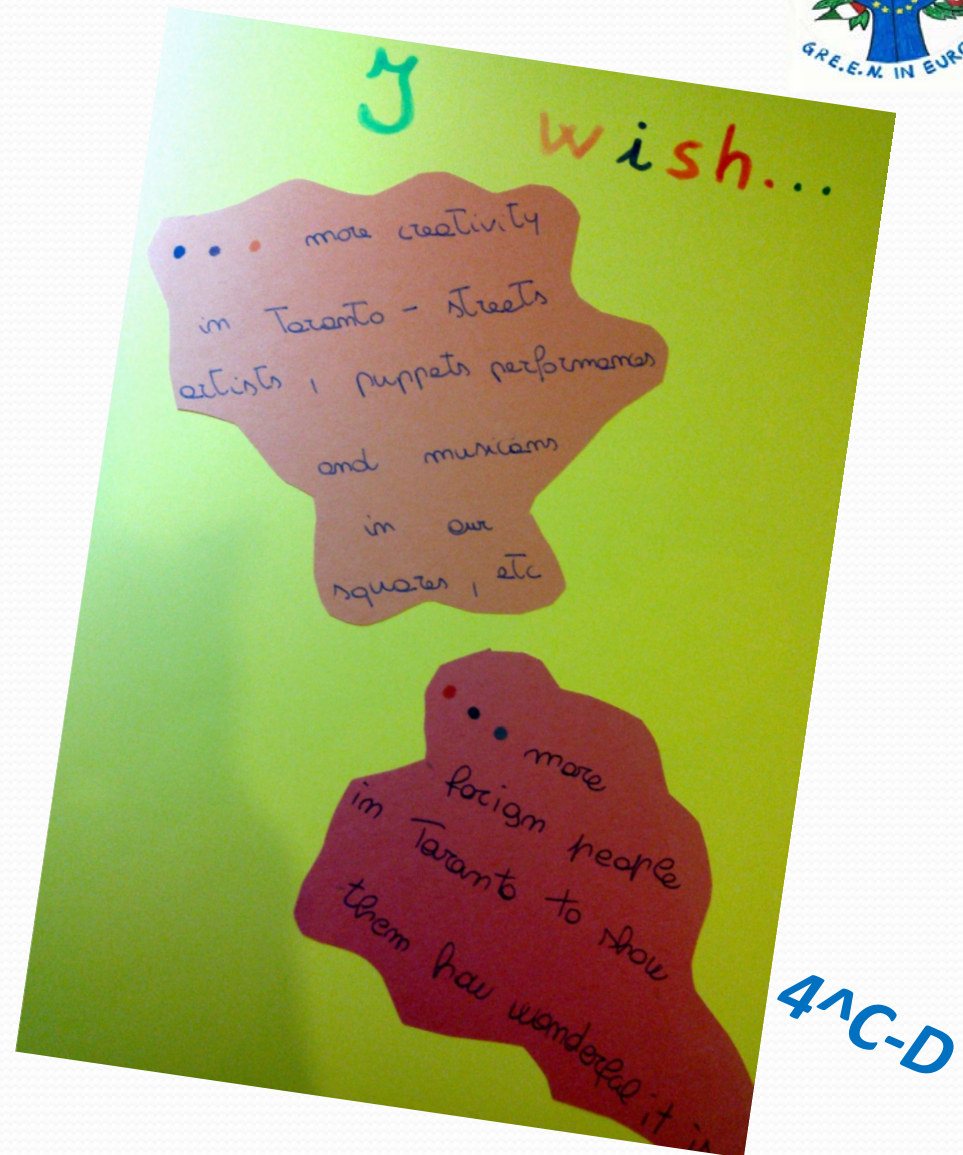 GRE.E.N. IN EURO
I wish...
... more creativity
in Taranto - streets
artists, puppets performances
and musicians
in our
squares, etc
... more
foreign people
in Taranto to show
them how wonderful it is
4^C-D